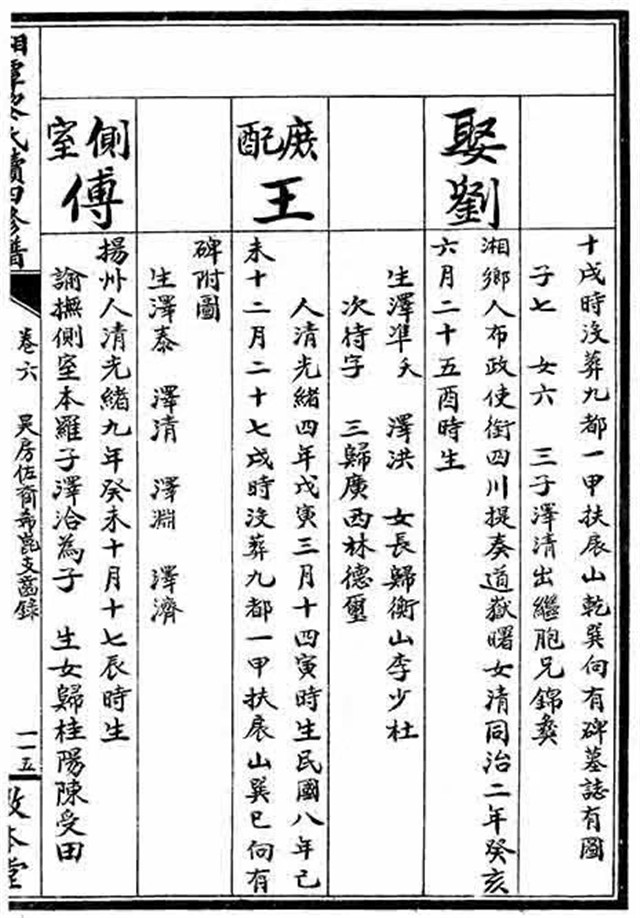 十戌時沒葬九都一甲扶扆山乾巽向有碑墓誌有圖
子七 女六 三子澤清出繼胞兄錦彝
娶劉
湘鄉人布政使銜四川提奏道嶽曙女清同治二年癸亥
六月二十五酉時生
生澤準夭 澤洪 女長歸衡山李少杜
次待字 三歸廣西林德璽
庶配王
人清光緒四年戊寅三月十四寅時生民國八年己
未十二月二十七戌時沒葬九都一甲扶扆山巽巳向有
碑附圖
生澤泰 澤清 澤淵 澤濟
側室傅
揚州人清光緒九年癸未十月十七辰時生
諭撫側室本羅子澤洽為子 生女歸桂陽陳受田
氏續四修譜
卷六 吳房佐裔希崑支齒錄
一一五
敦本堂